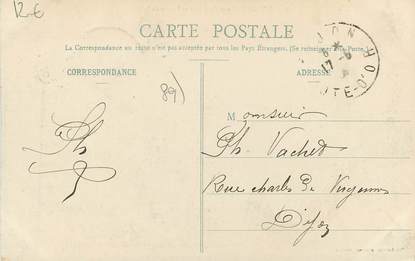 12€
CARTE POSTALE
La Correspondance au recto n'est pas acceptée par tous les Pays Étrangers. (Se renseigner à la Poste.)
CORRESPONDANCE
ADRESSE
89)
Ph
Monsieur
Ph. Vachet
Rue Charles de Vergennes
Dijon